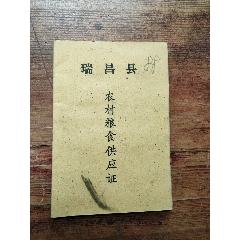 瑞昌县
农村粮食供应证